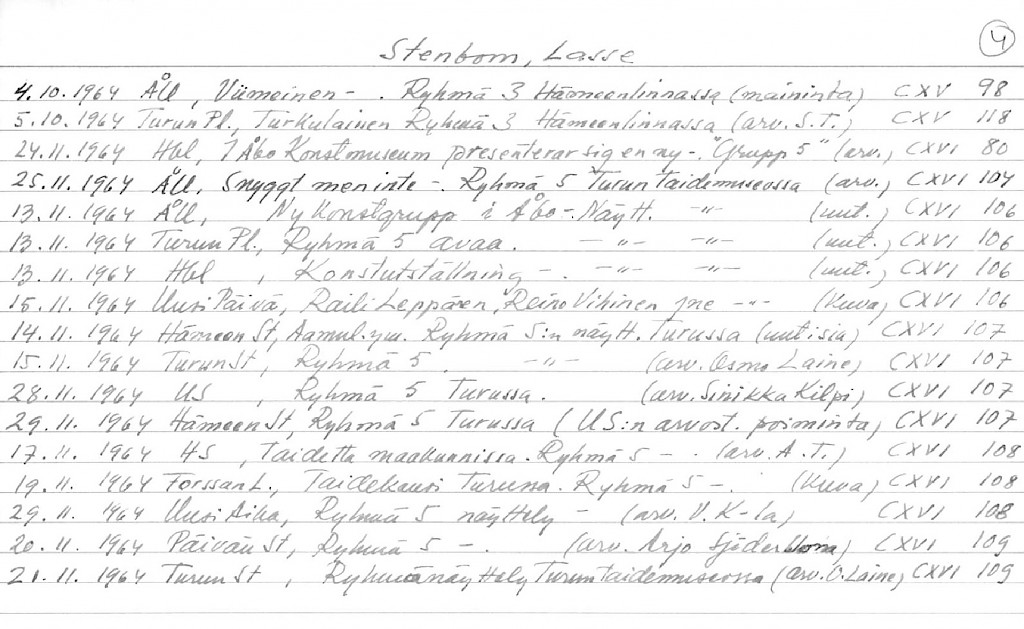 4
Stenbom, Lasse
4.10.1964 ÅU, Viimeinen - . Ryhmä 3 Hämeenlinnassa (maininta) CXV 98
5.10.1964 Turun Pl., Turkulainen Ryhmä 3 Hämeenlinnassa (arv. S.T.) CXV 118
24.11.1964 Hbl, I Åbo Konstmuseum presenterar sig en ny -. "Grupp 5" (arv.) CXVI 80
25.11.1964 ÅU, Snyggt men inte -. Ryhmä 5 Turun taidemuseossa (arv.) CXVI 104
13.11.1964 ÅU, Ny Konstgrupp i Åbo -. Näytt. -"- (uut.) CXVI 106
13.11.1964 Turun Pl., Ryhmä 5 avaa. -"- -"- (uut.) CXVI 106
13.11.1964 Hbl, Konstutställning -. -"- -"- (uut.) CXVI 106
15.11.1964 Uusi Päivä, Raili Leppänen, Reino Vihinen jne -"- (kuva) CXVI 106
14.11.1964 Hämeen St, Aamul. ym. Ryhmä 5:n näytt. Turussa (uutisia) CXVI 107
15.11.1964 Turun St, Ryhmä 5. -"- (arv. Osmo Laine) CXVI 107
28.11.1964 US, Ryhmä 5 Turussa. (arv. Sinikka Kilpi) CXVI 107
29.11.1964 Hämeen St, Ryhmä 5 Turussa (US:n arvost. poiminta) CXVI 107
17.11.1964 HS, Taidetta maakunnissa. Ryhmä 5 - . (arv. A.T.) CXVI 108
19.11.1964 Forssan L., Taidekausi Turussa. Ryhmä 5 -. (kuva) CXVI 108
29.11.1964 Uusi Aika, Ryhmä 5 näyttely - (arv. V. K-la) CXVI 108
20.11.1964 Päivän St, Ryhmä 5 -. (arv. Arjo) CXVI 109
21.11.1964 Turun St, Ryhmänäyttely Turun taidemuseossa (arv. O. Laine) CXVI 109